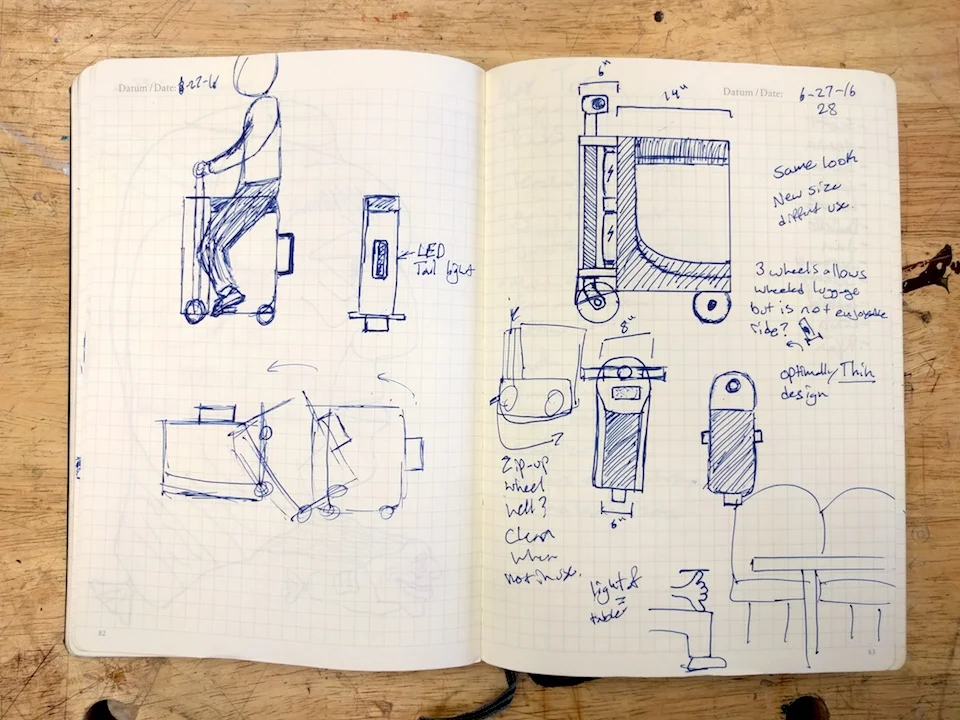 Datum / Date: 6-27-16
LED
Tail light
82
6"
14"
Datum / Date: 6-27-16
28
Same look
New size
diffrnt use.
3 wheels allows
wheeled luggage
but is not enjoyable
ride?
optimally Thin
design
8"
6"
Zip-up
wheel
well?
Clean
when
not in use.
light &
table
63